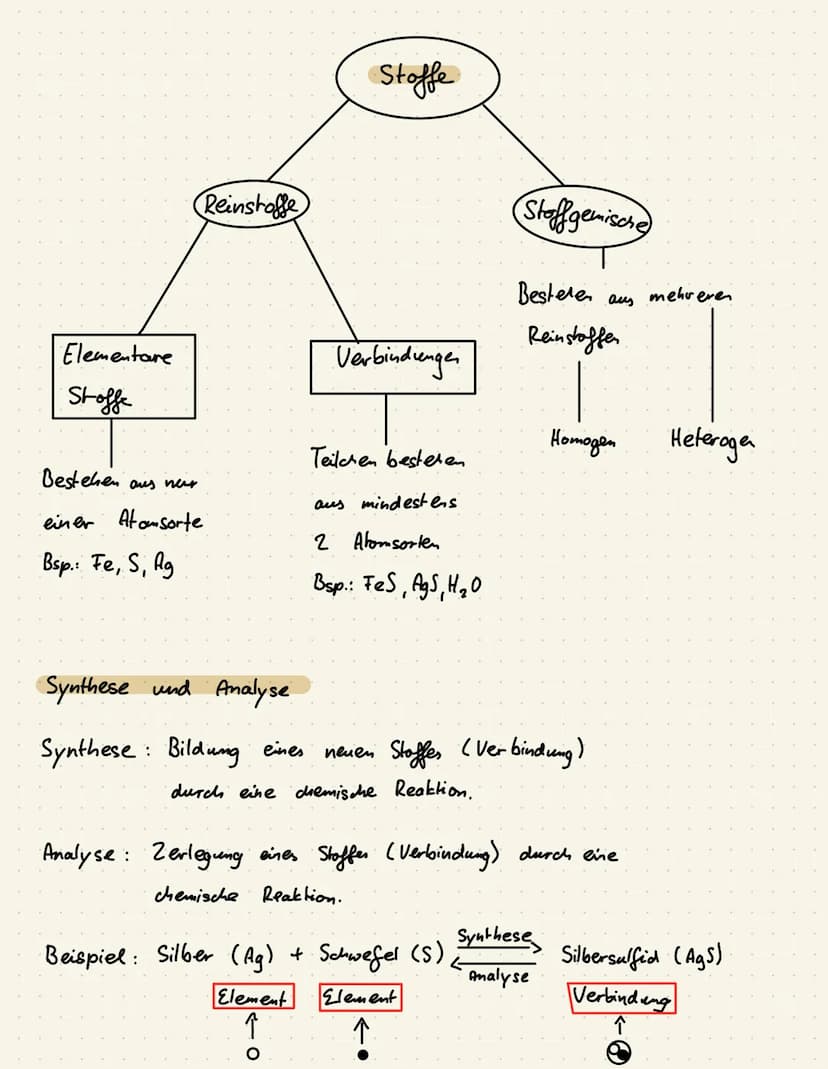 Stoffe
Reinstoffe
Stoffgemische
Bestehen aus mehreren
Reinstoffen
Homogen
Heterogen
Elementare
Stoffe
Bestehen aus nur
einer Atomsorte
Bsp.: Fe, S, Ag
Verbindungen
Teilchen bestehen
aus mindestens
2 Atomsorten
Bsp.: FeS, AgS, H₂O
Synthese und Analyse
Synthese: Bildung eines neuen Stoffes (Verbindung)
durch eine chemische Reaktion.
Analyse: Zerlegung eines Stoffes (Verbindung) durch eine
chemische Reaktion.
Beispiel: Silber (Ag) + Schwefel (S) Synthese Silbersulfid (AgS)
Analyse
Element Element Verbindung